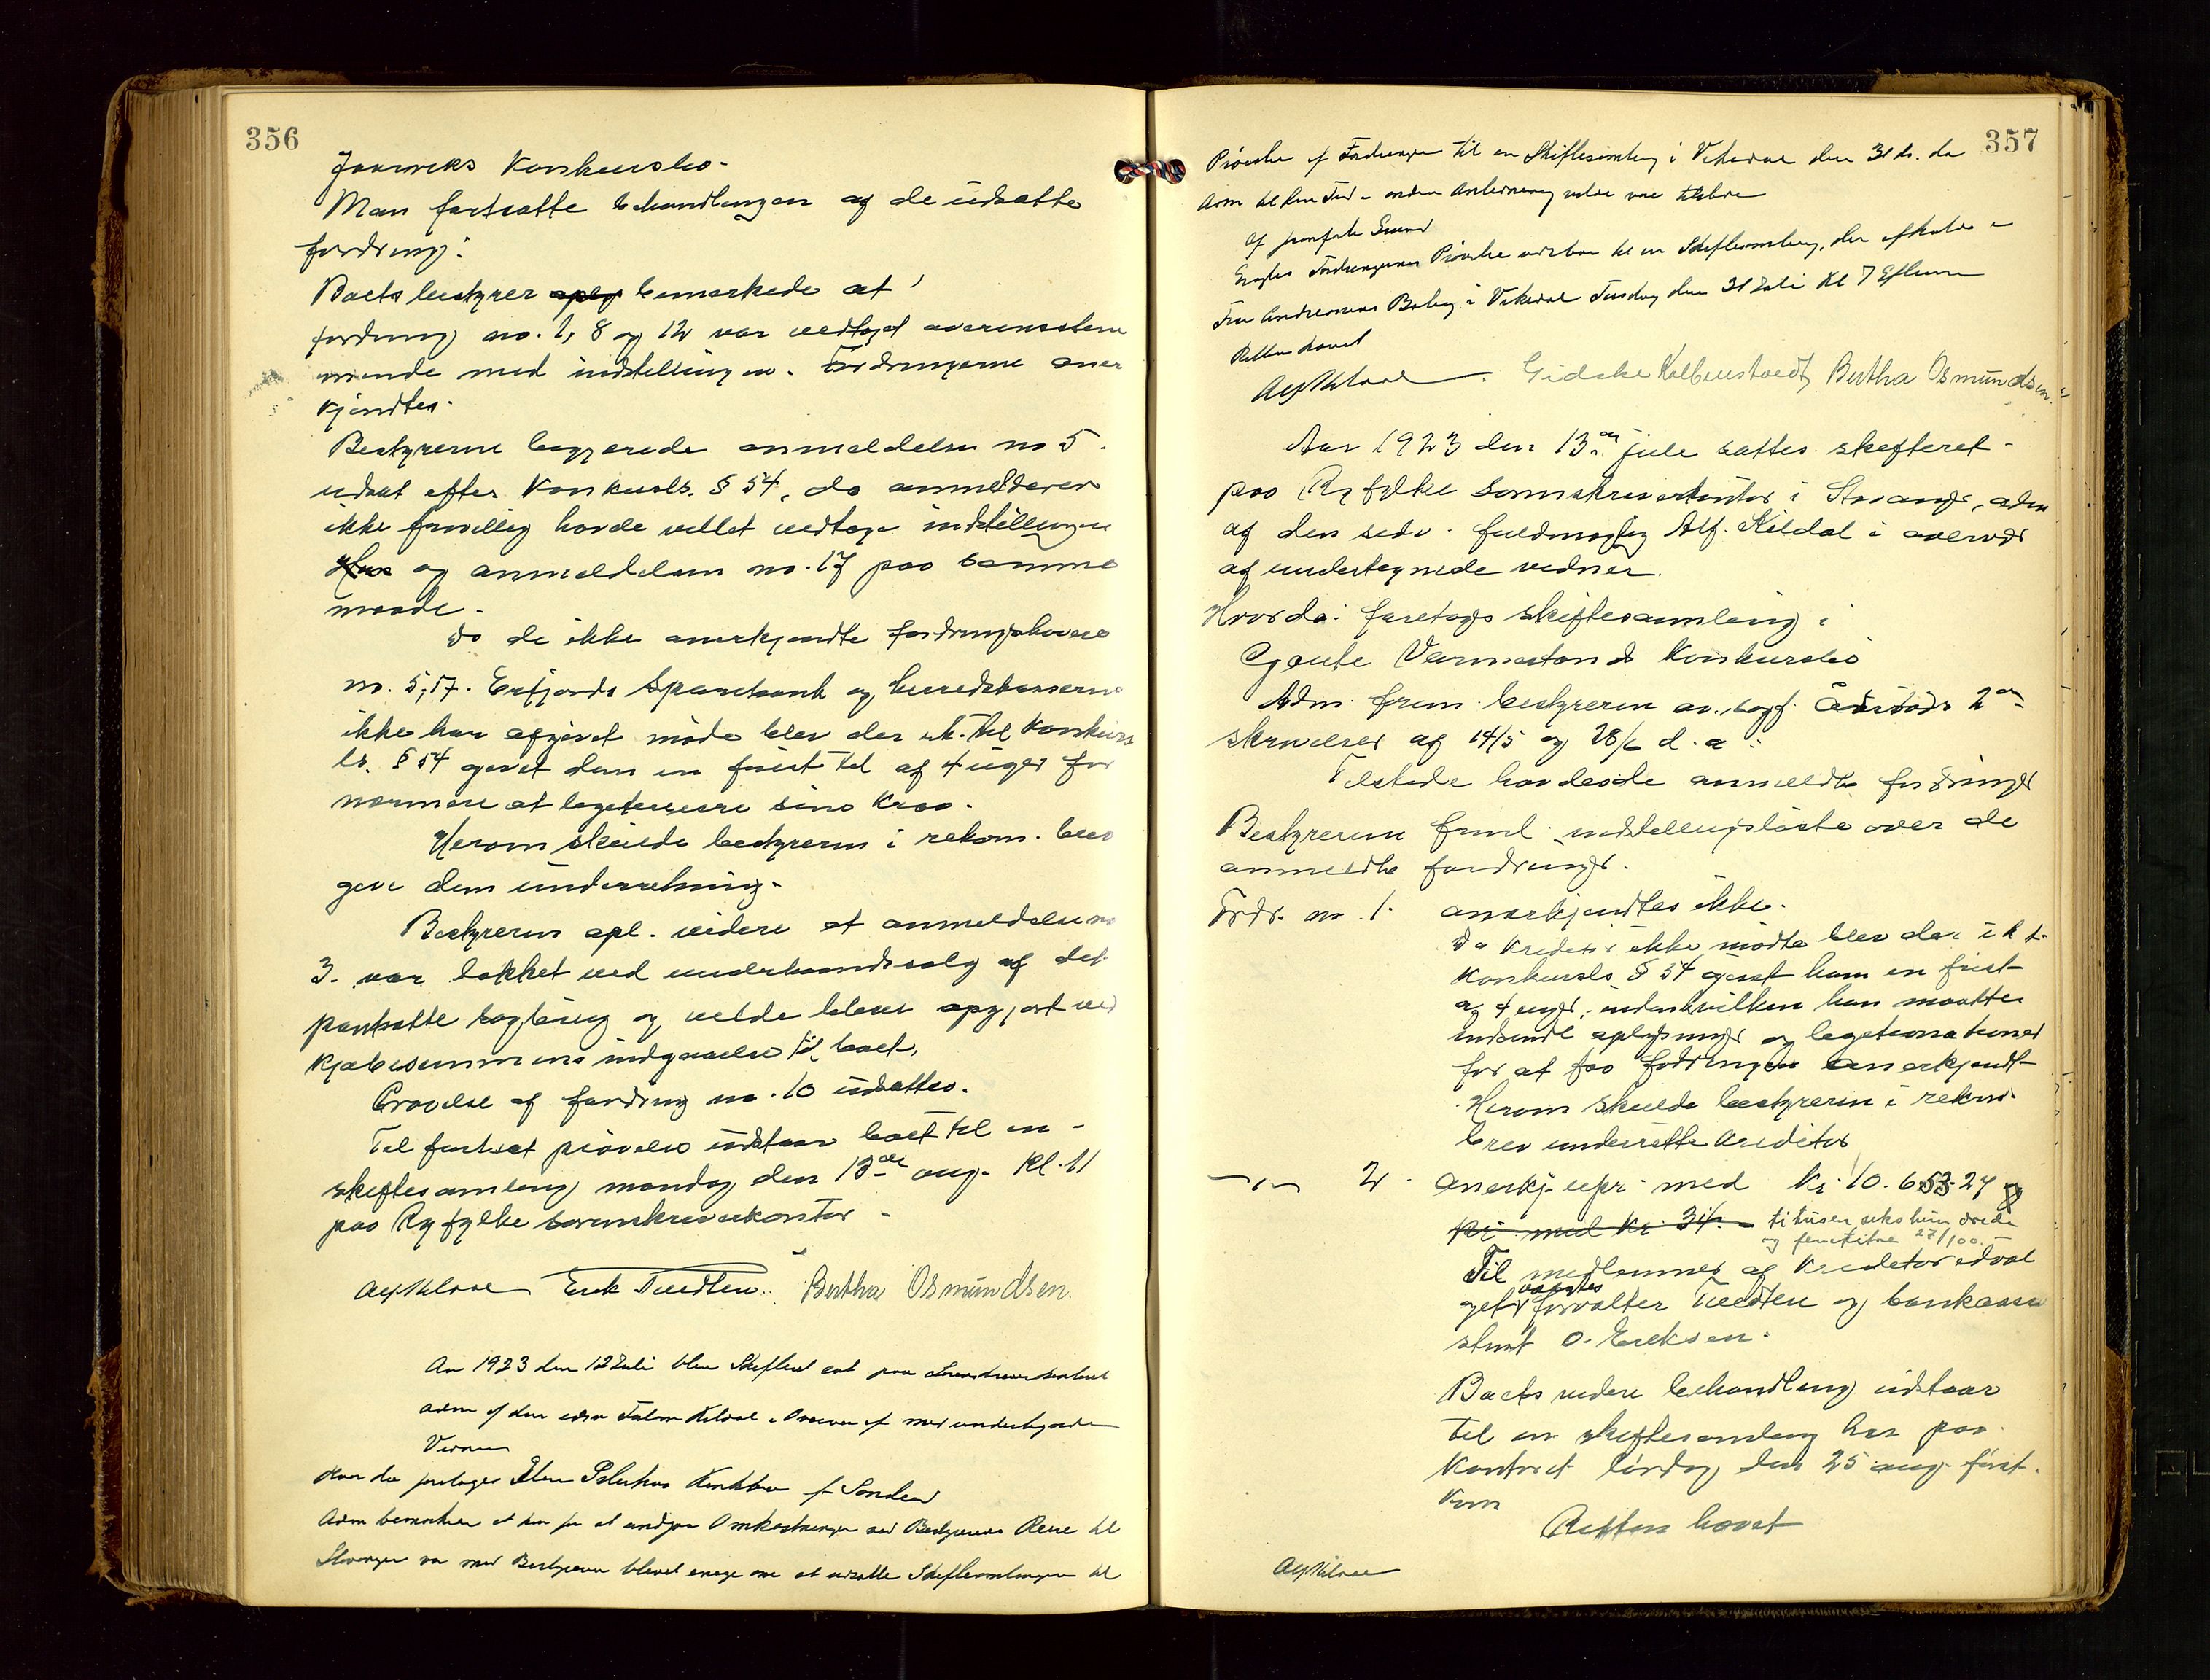 356
Konkursbo.
Man fortsatte behandlingen af de udsatte
fordring:
Boets bestyrer oply bemerkede at
fordring no. 1, 8 og 12 var vedtaget overensstem
mende med indstillingen. Fordringerne aner
kjendtes.
Bestyreren begjærede anmeldelse no 5
udsat efter Konkursls. § 54, da anmelderen
ikke frivillig havde villet vedtage indstillingen
og anmeldelsen no. 17 paa samme
maade.
Da de ikke anerkjendte fordringshavere
no. 5, 17. Erfjords Sparebank og herredskasserne
ikke har afgivet møde blev der i h. til Konkurs
ls. § 54 givet dem en frist til af 4 uger for
nærmere at legitimere sine krav.
Herom skulde bestyreren i rekom. brev
give dem underretning.
Bestyreren opl. videre at anmeldelse no
3. var dækket ved underhaandssalg af det
pantsatte og vilde blive opgjort ved
kjøbesummens indgaaelse til boet.
Prøvelse af fordring no. 10 udsattes.
Til fortsat prøvelse udstaar boet til en
skiftesamling mandag den 13de aug. kl. 11
paa Ryfylke sorenskriverkontor.
Alf Kildal Erik Tvedten. Bertha Osmundsen.
Aar 1923 den 12 Juli blev Skifteret sat paa Sorenskriverkontoret
adm af den edsv Fuldm Kildal i Overvær af med undertegnede
Vidner
Hvor da foretages Konkbo af Sandeid
Adm bemerkede at han for at undgaa Omkostninger ved Bestyrerens Reise til
Stavanger var med Bestyreren blevet enige om at udsætte Skiftesamlingen til
357
Prøvelse af Fordringer til en Skiftesamling i Vikedal den 31 ds. da
Adm til den Tid i anden Anledning vilde være tilstede
Af Grund
Fordringernes Prøvelse udstaar til en Skiftesamling, der afholdes i
Fru Andreasens Bolig i Vikedal Tirsdag den 31 Juli Kl 7 Efterm
Retten hævet
Alf Kildal. Gidske Kolbenstvedt, Bertha Osmundsen.
Aar 1923 den 13de juli sattes skifteret
paa Ryfylke sorenskriverkontor i Stavanger, adm
af den edsv. fuldmægtig Alf. Kildal i overvær
af undertegnede vidner.
Hvorda: foretoges skiftesamling i
Gaute Varmestands Konkursbo
Adm. frem. bestyreren ov. sagf. 2de
skrivelser af 14/5 og 28/6 d. a.
Tilstede havdes de anmeldte fordringer
Bestyreren freml. indstillingsliste over de
anmeldte fordringer.
Fordr. no. 1. anerkjendtes ikke.
Da kreditor ikke mødte blev der i h t.
Konkursls. § 54 givet ham en frist
af 4 uger, inden hvilken han maatte
indsende oplysninger og legitimationer
for at faa fordringen anerkjendt
Herom skulde bestyreren i rekom.
brev underrette creditor
—"— 2. anerkj. upr. med kr. 10.653.27
pr. med kr. 34. titusen seks hun drede
og femtitre 27/100.
Til medlemmer af Kreditorudval
get valgtes forvalter Tveedten og bankkasse
O. Eriksen.
Boets videre behandling udstaar
til en skiftesamling her paa
Kontoret lørdag den 25 aug. først.
kom
Retten hævet
Alf Kildal